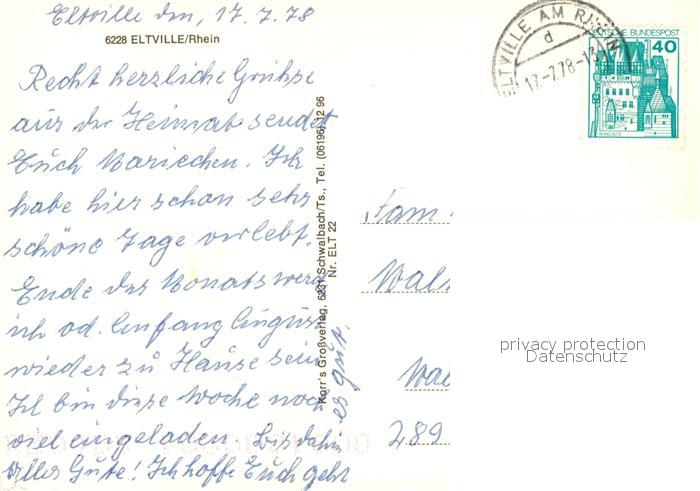 Eltville den, 17.7.78
6228 ELTVILLE/Rhein
Recht herzliche Grühse
aus der Heimat sendet
Euch Mariechen. Ich
habe hier schon sehr
schöne Tage verlebt.
Ende des Monats werd
ich od. Anfang August
wieder zu Hause sein
Ich bin diese Woche noch
viel eingeladen. bis dahin
alles Gute! Ich hoffe Euch geht
es gut.
Korr's Großverlag, 6231 Schwalbach/Ts., Tel. (06196) 12 96
Nr. ELT 22
ELTVILLE AM RHEIN
d
17.-7.78-13
DEUTSCHE BUNDESPOST
40
BURG ELTZ
Fam.
Wal
289
privacy protection
Datenschutz